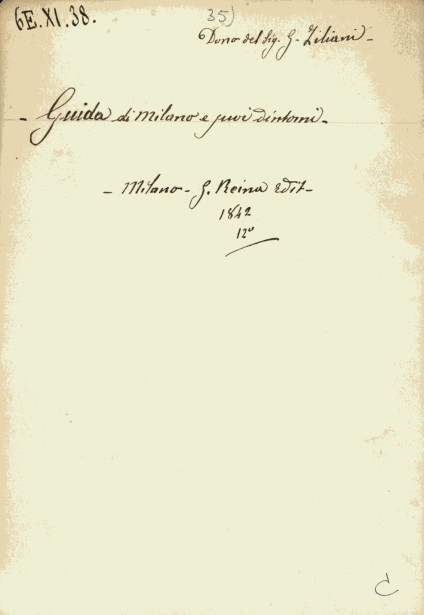 6E.XI.38.
35)
Dono del Sig. G. Ziliani -
- Guida di Milano e suoi dintorni -
- Milano - G. Reina Edit -
1842
12°
C